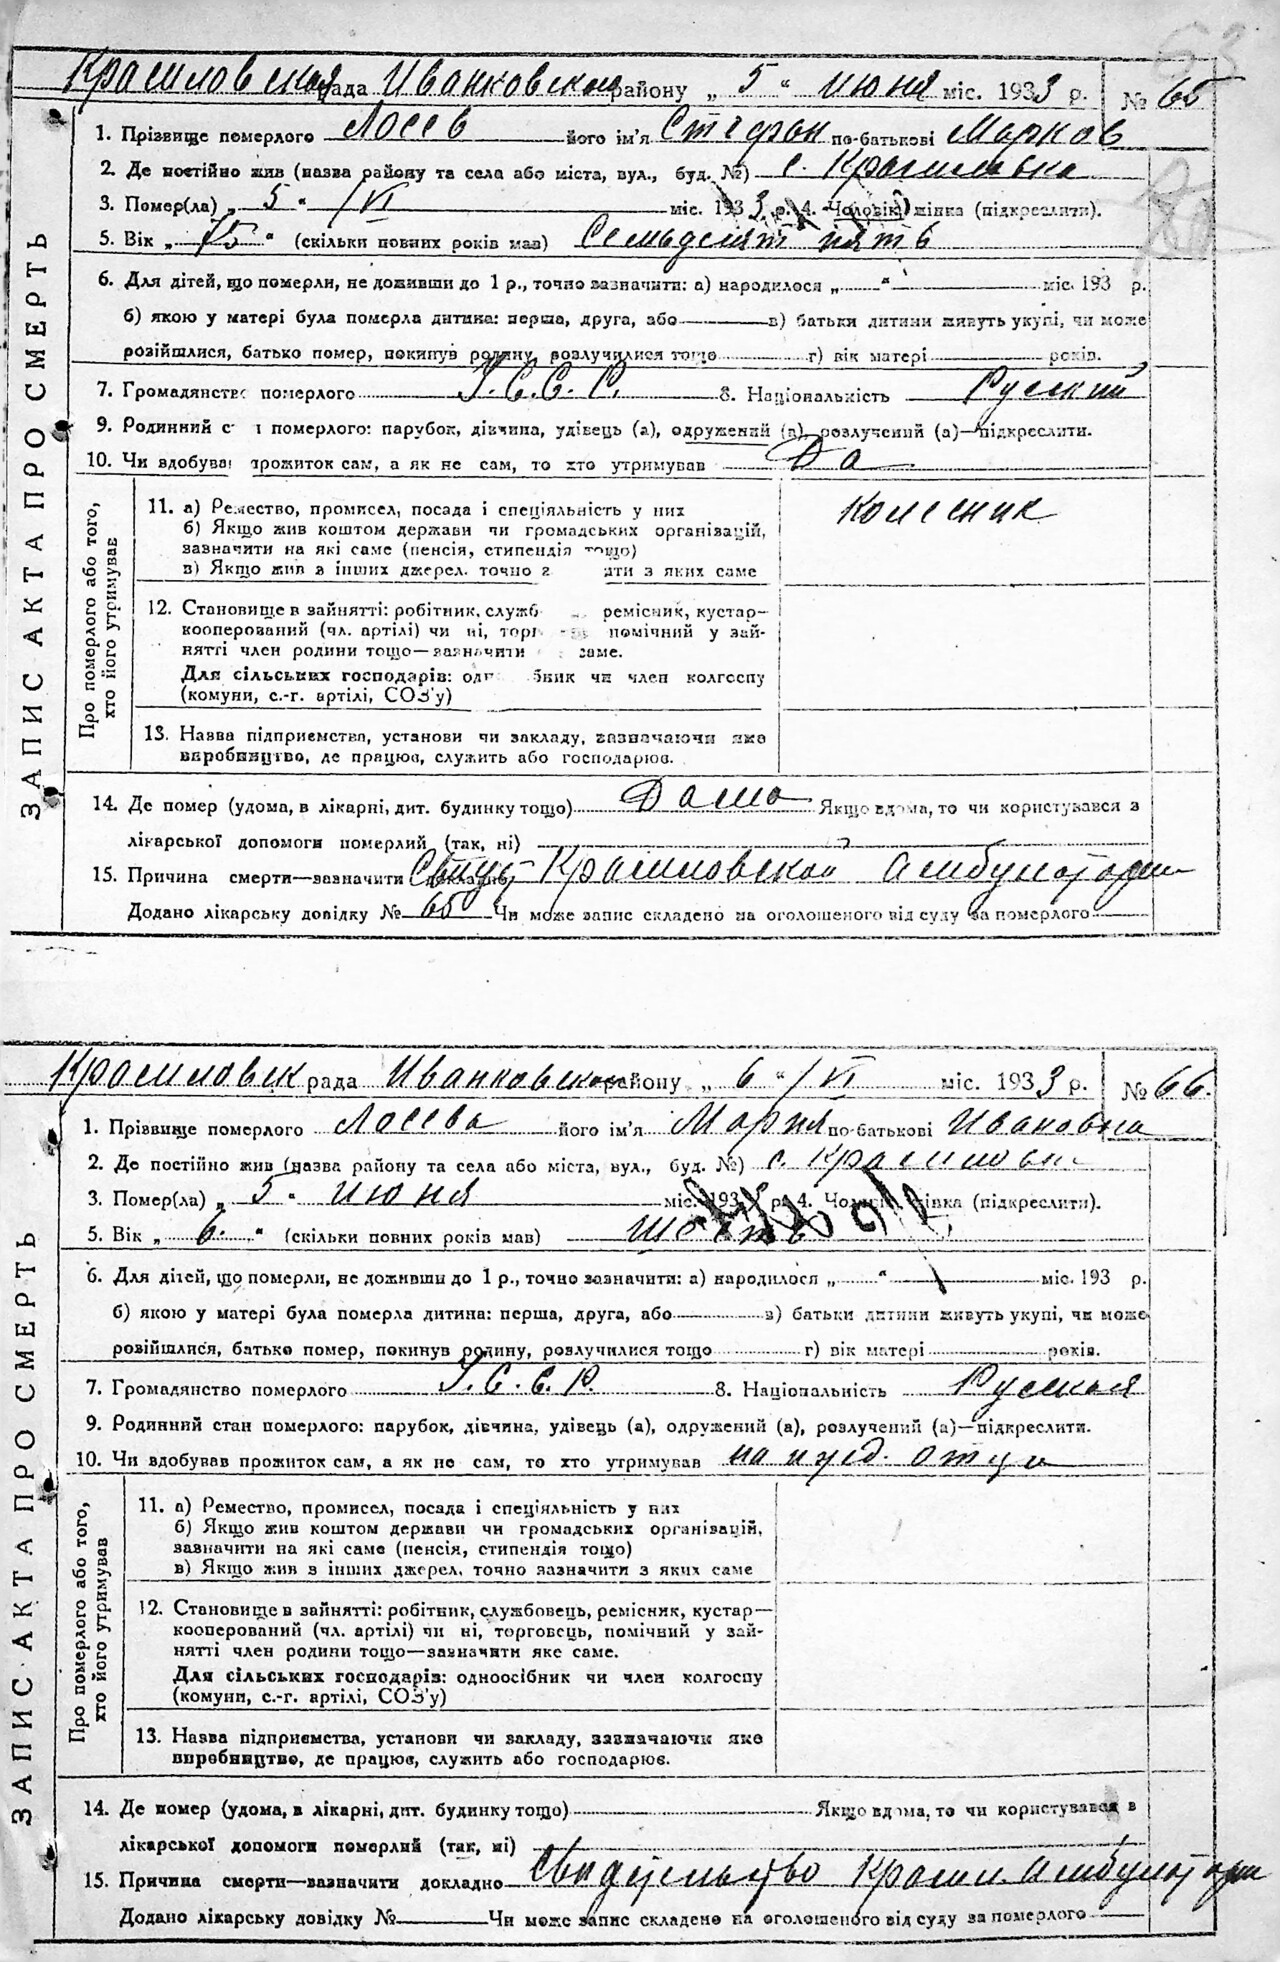 53
Красиловская рада Иванковского району „ 5 “ июня міс. 1933 р. № 65
1. Прізвище померлого Лосев його ім'я Стефан по-батькові Марков
2. Де постійно жив (назва району та села або міста, вул., буд. №) с. Красиловка
3. Помер(ла) „ 5 “ /VI міс. 1933 р. 4. Чоловік, жінка (підкреслити).
5. Вік „ 75 “ (скільки повних років мав) Семьдесят пять
6. Для дітей, що померли, не доживши до 1 р., точно зазначити: а) народилося „ “ міс. 193 р.
б) якою у матері була померла дитина: перша, друга, або в) батьки дитини живуть укупі, чи може
розійшлися, батько помер, покинув родину, розлучилися тощо г) вік матері років.
7. Громадянство померлого У.С.С.Р. 8. Національність Руский
9. Родинний с померлого: парубок, дівчина, удівець (а), одружений (а), розлучений (а)—підкреслити.
10. Чи вдобува прожиток сам, а як не сам, то хто утримував Да
ЗАПИС АКТА ПРО СМЕРТЬ
Про померлого або того, хто його утримував
11. а) Ремество, промисел, посада і спеціяльність у них Колесник
б) Якщо жив коштом держави чи громадських організацій,
зазначити на які саме (пенсія, стипендія тощо)
в) Якщо жив з інших джерел, точно з яти з яких саме
12. Становище в зайнятті: робітник, служб ремісник, кустар—
кооперований (чл. артілі) чи ні, торг помічний у зай-
нятті член родини тощо—зазначити саме.
Для сільських господарів: од бник чи член колгоспу
(комуни, с.-г. артілі, СОЗ'у)
13. Назва підприємства, установи чи закладу, зазначаючи яке
виробництво, де працює, служить або господарює.
14. Де помер (удома, в лікарні, дит. будинку тощо) Дома Якщо вдома, то чи користувався з
лікарської допомоги померлий (так, ні)
15. Причина смерти—зазначити докладно Свид Красиловской Амбулатории
Додано лікарську довідку № 65 Чи може запис складено на оголошеного від суду за померлого
Красиловск рада Иванковского району „ 6 “ /VI міс. 1933 р. № 66.
1. Прізвище померлого Лосева його ім'я Мария по-батькові Ивановна
2. Де постійно жив (назва району та села або міста, вул., буд. №) с. Красиловка
3. Помер(ла) „ 5 “ июня міс. 1933 р. 4. Чоловік, жінка (підкреслити).
5. Вік „ 6. “ (скільки повних років мав) Шесть
6. Для дітей, що померли, не доживши до 1 р., точно зазначити: а) народилося „ “ міс. 193 р.
б) якою у матері була померла дитина: перша, друга, або в) батьки дитини живуть укупі, чи може
розійшлися, батько помер, покинув родину, розлучилися тощо г) вік матері років.
7. Громадянство померлого У.С.С.Р. 8. Національність Руская
9. Родинний стан померлого: парубок, дівчина, удівець (а), одружений (а), розлучений (а)—підкреслити.
10. Чи вдобував прожиток сам, а як не сам, то хто утримував на ижд. отца
ЗАПИС АКТА ПРО СМЕРТЬ
Про померлого або того, хто його утримував
11. а) Ремество, промисел, посада і спеціяльність у них
б) Якщо жив коштом держави чи громадських організацій,
зазначити на які саме (пенсія, стипендія тощо)
в) Якщо жив з інших джерел, точно зазначити з яких саме
12. Становище в зайнятті: робітник, службовець, ремісник, кустар—
кооперований (чл. артілі) чи ні, торговець, помічний у зай-
нятті член родини тощо—зазначити яке саме.
Для сільських господарів: одноосібник чи член колгоспу
(комуни, с.-г. артілі, СОЗ'у)
13. Назва підприємства, установи чи закладу, зазначаючи яке
виробництво, де працює, служить або господарює.
14. Де помер (удома, в лікарні, дит. будинку тощо) Якщо вдома, то чи користувався в
лікарської допомоги померлий (так, ні)
15. Причина смерти—зазначити докладно Свидетельство Красил. Амбулатории
Додано лікарську довідку № Чи може запис складено на оголошеного від суду за померлого